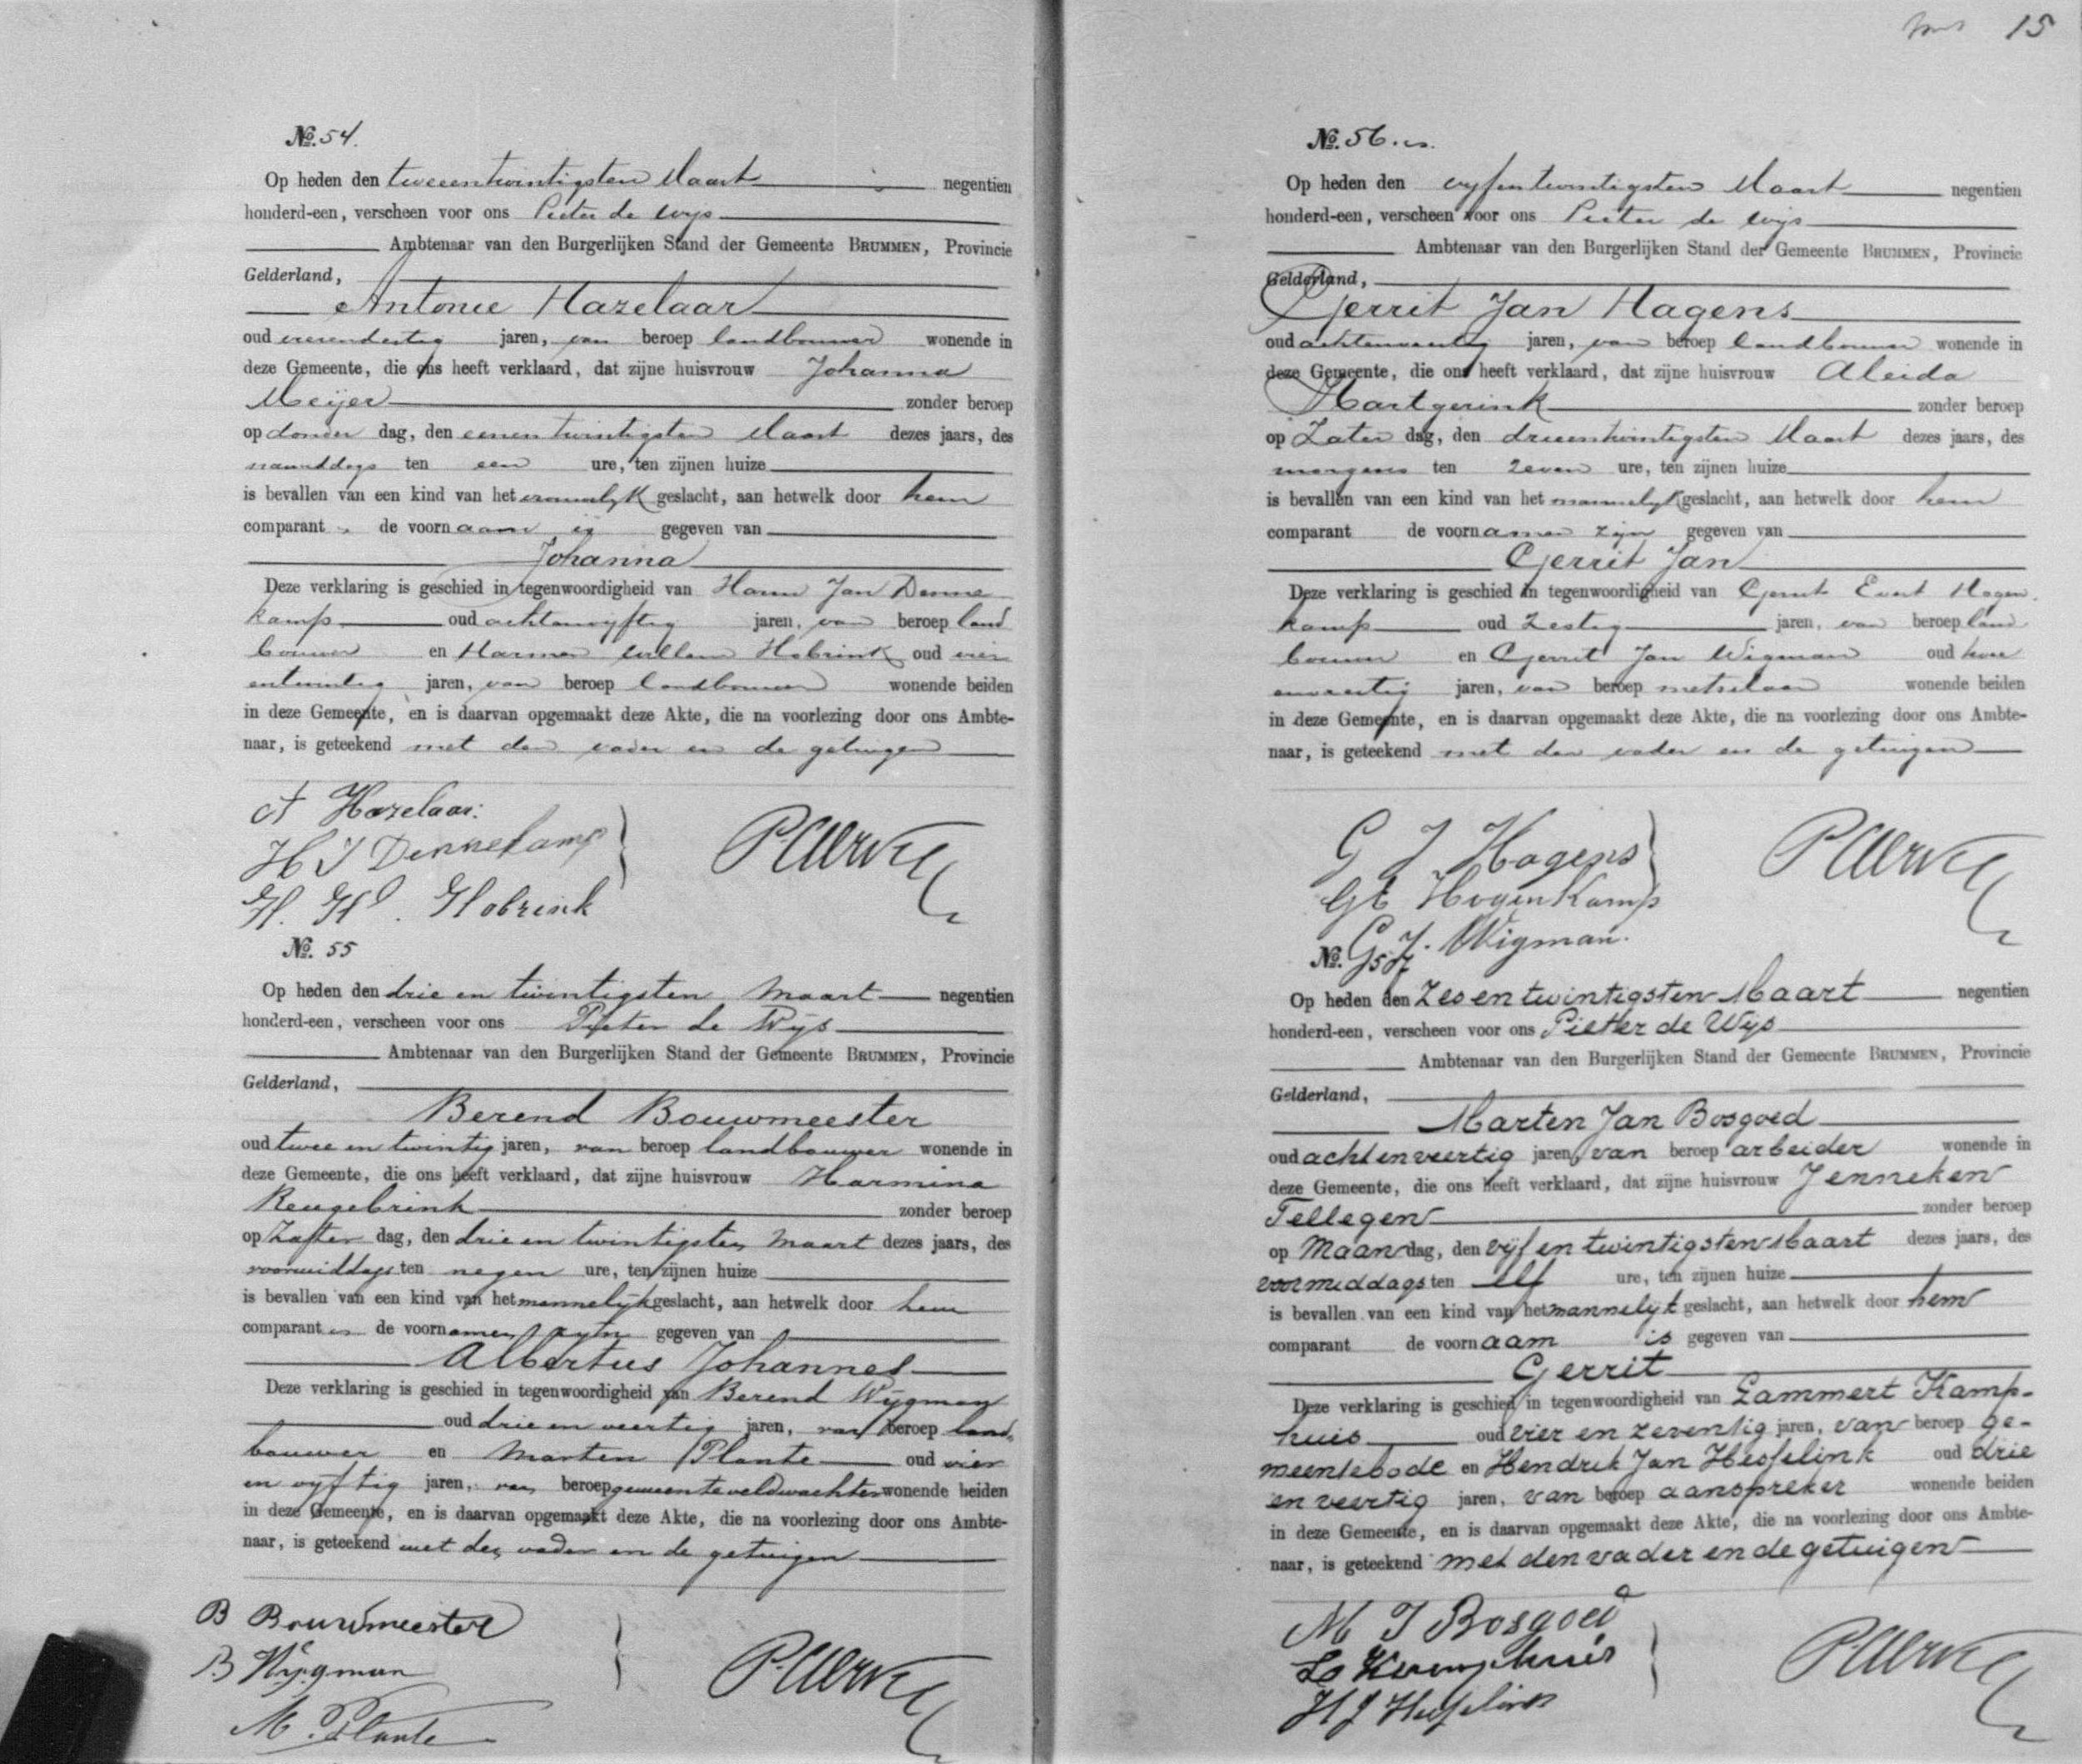 15
№. 54.
Op heden den tweeentwintigsten Maart negentien
honderd-een, verscheen voor ons Pieter de Wijs
Ambtenaar van den Burgerlijken Stand der Gemeente BRUMMEN, Provincie
Gelderland,
Antonie Hazelaar
oud vierendertig jaren, van beroep landbouwer wonende in
deze Gemeente, die ons heeft verklaard, dat zijne huisvrouw Johanna
Meijer zonder beroep
op donder dag, den eenentwintigsten Maart dezes jaars, des
namiddags ten een ure, ten zijnen huize
is bevallen van een kind van het vrouwelyk geslacht, aan hetwelk door hem
comparant de voornaam is gegeven van
Johanna
Deze verklaring is geschied in tegenwoordigheid van Harm Jan Denne
kamp oud achtenvyftig jaren, van beroep land
bouwer en Harmen Willem Hobrink oud vier
entwintig jaren, van beroep landbouwer wonende beiden
in deze Gemeente, en is daarvan opgemaakt deze Akte, die na voorlezing door ons Ambte-
naar, is geteekend met den vader en de getuigen
A Hazelaar.
H J Dennekamp
H. W. Hobrink
№. 55
Op heden den drie en twintigsten Maart negentien
honderd-een, verscheen voor ons Pieter de Wijs
Ambtenaar van den Burgerlijken Stand der Gemeente BRUMMEN, Provincie
Gelderland,
Berend Bouwmeester
oud twee en twintig jaren, van beroep landbouwer wonende in
deze Gemeente, die ons heeft verklaard, dat zijne huisvrouw Harmina
Reugebrink zonder beroep
op Zater dag, den drie en twintigsten Maart dezes jaars, des
voormiddags ten negen ure, ten zijnen huize
is bevallen van een kind van het mannelijk geslacht, aan hetwelk door hem
comparant de voornamen zyn gegeven van
Albertus Johannes
Deze verklaring is geschied in tegenwoordigheid van Berend Wijgman
oud drie en veertig jaren, van beroep land
bouwer en Marten Plante oud vier
en vyftig jaren, van beroep gemeenteveldwachter wonende beiden
in deze Gemeente, en is daarvan opgemaakt deze Akte, die na voorlezing door ons Ambte-
naar, is geteekend met den vader en de getuigen
B Bouwmeester
B Wijgman
M. Plante
№. 56.
Op heden den vyfentwintigsten Maart negentien
honderd-een, verscheen voor ons Pieter de Wijs
Ambtenaar van den Burgerlijken Stand der Gemeente BRUMMEN, Provincie
Gelderland,
Gerrit Jan Hagens
oud achtenveertig jaren, van beroep landbouwer wonende in
deze Gemeente, die ons heeft verklaard, dat zijne huisvrouw Aleida
Hartgerink zonder beroep
op Zater dag, den drieentwintigsten Maart dezes jaars, des
morgens ten zeven ure, ten zijnen huize
is bevallen van een kind van het mannelyk geslacht, aan hetwelk door hem
comparant de voornamen zijn gegeven van
Gerrit Jan
Deze verklaring is geschied in tegenwoordigheid van Gerrit Evert Hagen
kamp oud Zestig jaren, van beroep land
bouwer en Gerrit Jan Wigman oud twee
enveertig jaren, van beroep metselaar wonende beiden
in deze Gemeente, en is daarvan opgemaakt deze Akte, die na voorlezing door ons Ambte-
naar, is geteekend met den vader en de getuigen
G J Hagens
GE HagenKamp
G J. Wigman.
№. 57
Op heden den Zes en twintigsten Maart negentien
honderd-een, verscheen voor ons Pieter de Wijs
Ambtenaar van den Burgerlijken Stand der Gemeente BRUMMEN, Provincie
Gelderland,
Marten Jan Bosgoed
oud acht en veertig jaren, van beroep arbeider wonende in
deze Gemeente, die ons heeft verklaard, dat zijne huisvrouw Jenneken
Tellegen zonder beroep
op Maan dag, den vijf en twintigsten Maart dezes jaars, des
voormiddags ten elf ure, ten zijnen huize
is bevallen van een kind van het mannelijk geslacht, aan hetwelk door hem
comparant de voornaam is gegeven van
Gerrit
Deze verklaring is geschied in tegenwoordigheid van Lammert Kamp-
huis oud vier en zeventig jaren, van beroep ge-
meentebode en Hendrik Jan Hesselink oud drie
en veertig jaren, van beroep aanspreker wonende beiden
in deze Gemeente, en is daarvan opgemaakt deze Akte, die na voorlezing door ons Ambte-
naar, is geteekend met den vader en de getuigen
M J Bosgoed
L Kamphuis
H J Hesselink